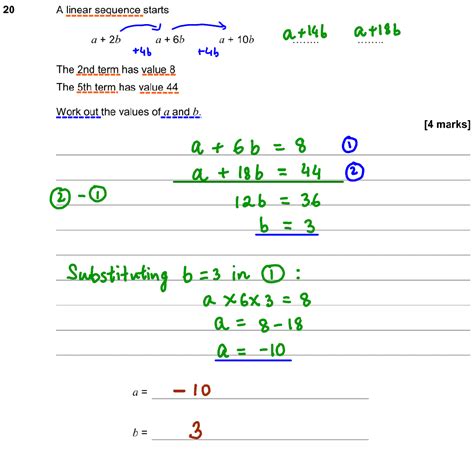 20 A linear sequence starts
a + 2b a + 6b a + 10b a+14b a+18b
+4b +4b
The 2nd term has value 8
The 5th term has value 44
Work out the values of a and b.
[4 marks]
a + 6b = 8 ①
a + 18b = 44 ②
② - ① 12b = 36
b = 3
Substituting b=3 in ① :
a × 6 × 3 = 8
a = 8 - 18
a = -10
a = -10
b = 3